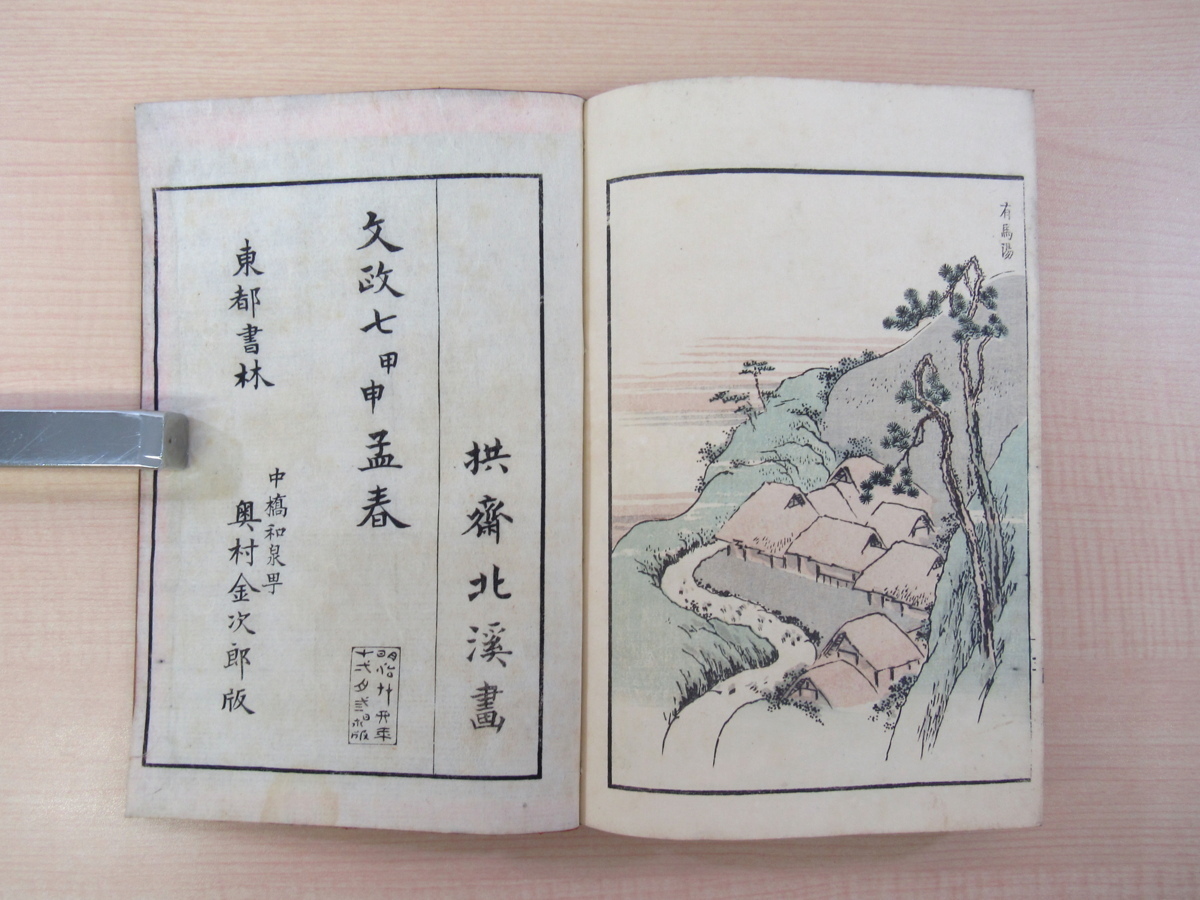 有馬陽
拱齋北溪畫
文政七甲申孟春
東都書林
中橋和泉町
奥村金次郎版
明治廿五年
十弐月弐拾日版